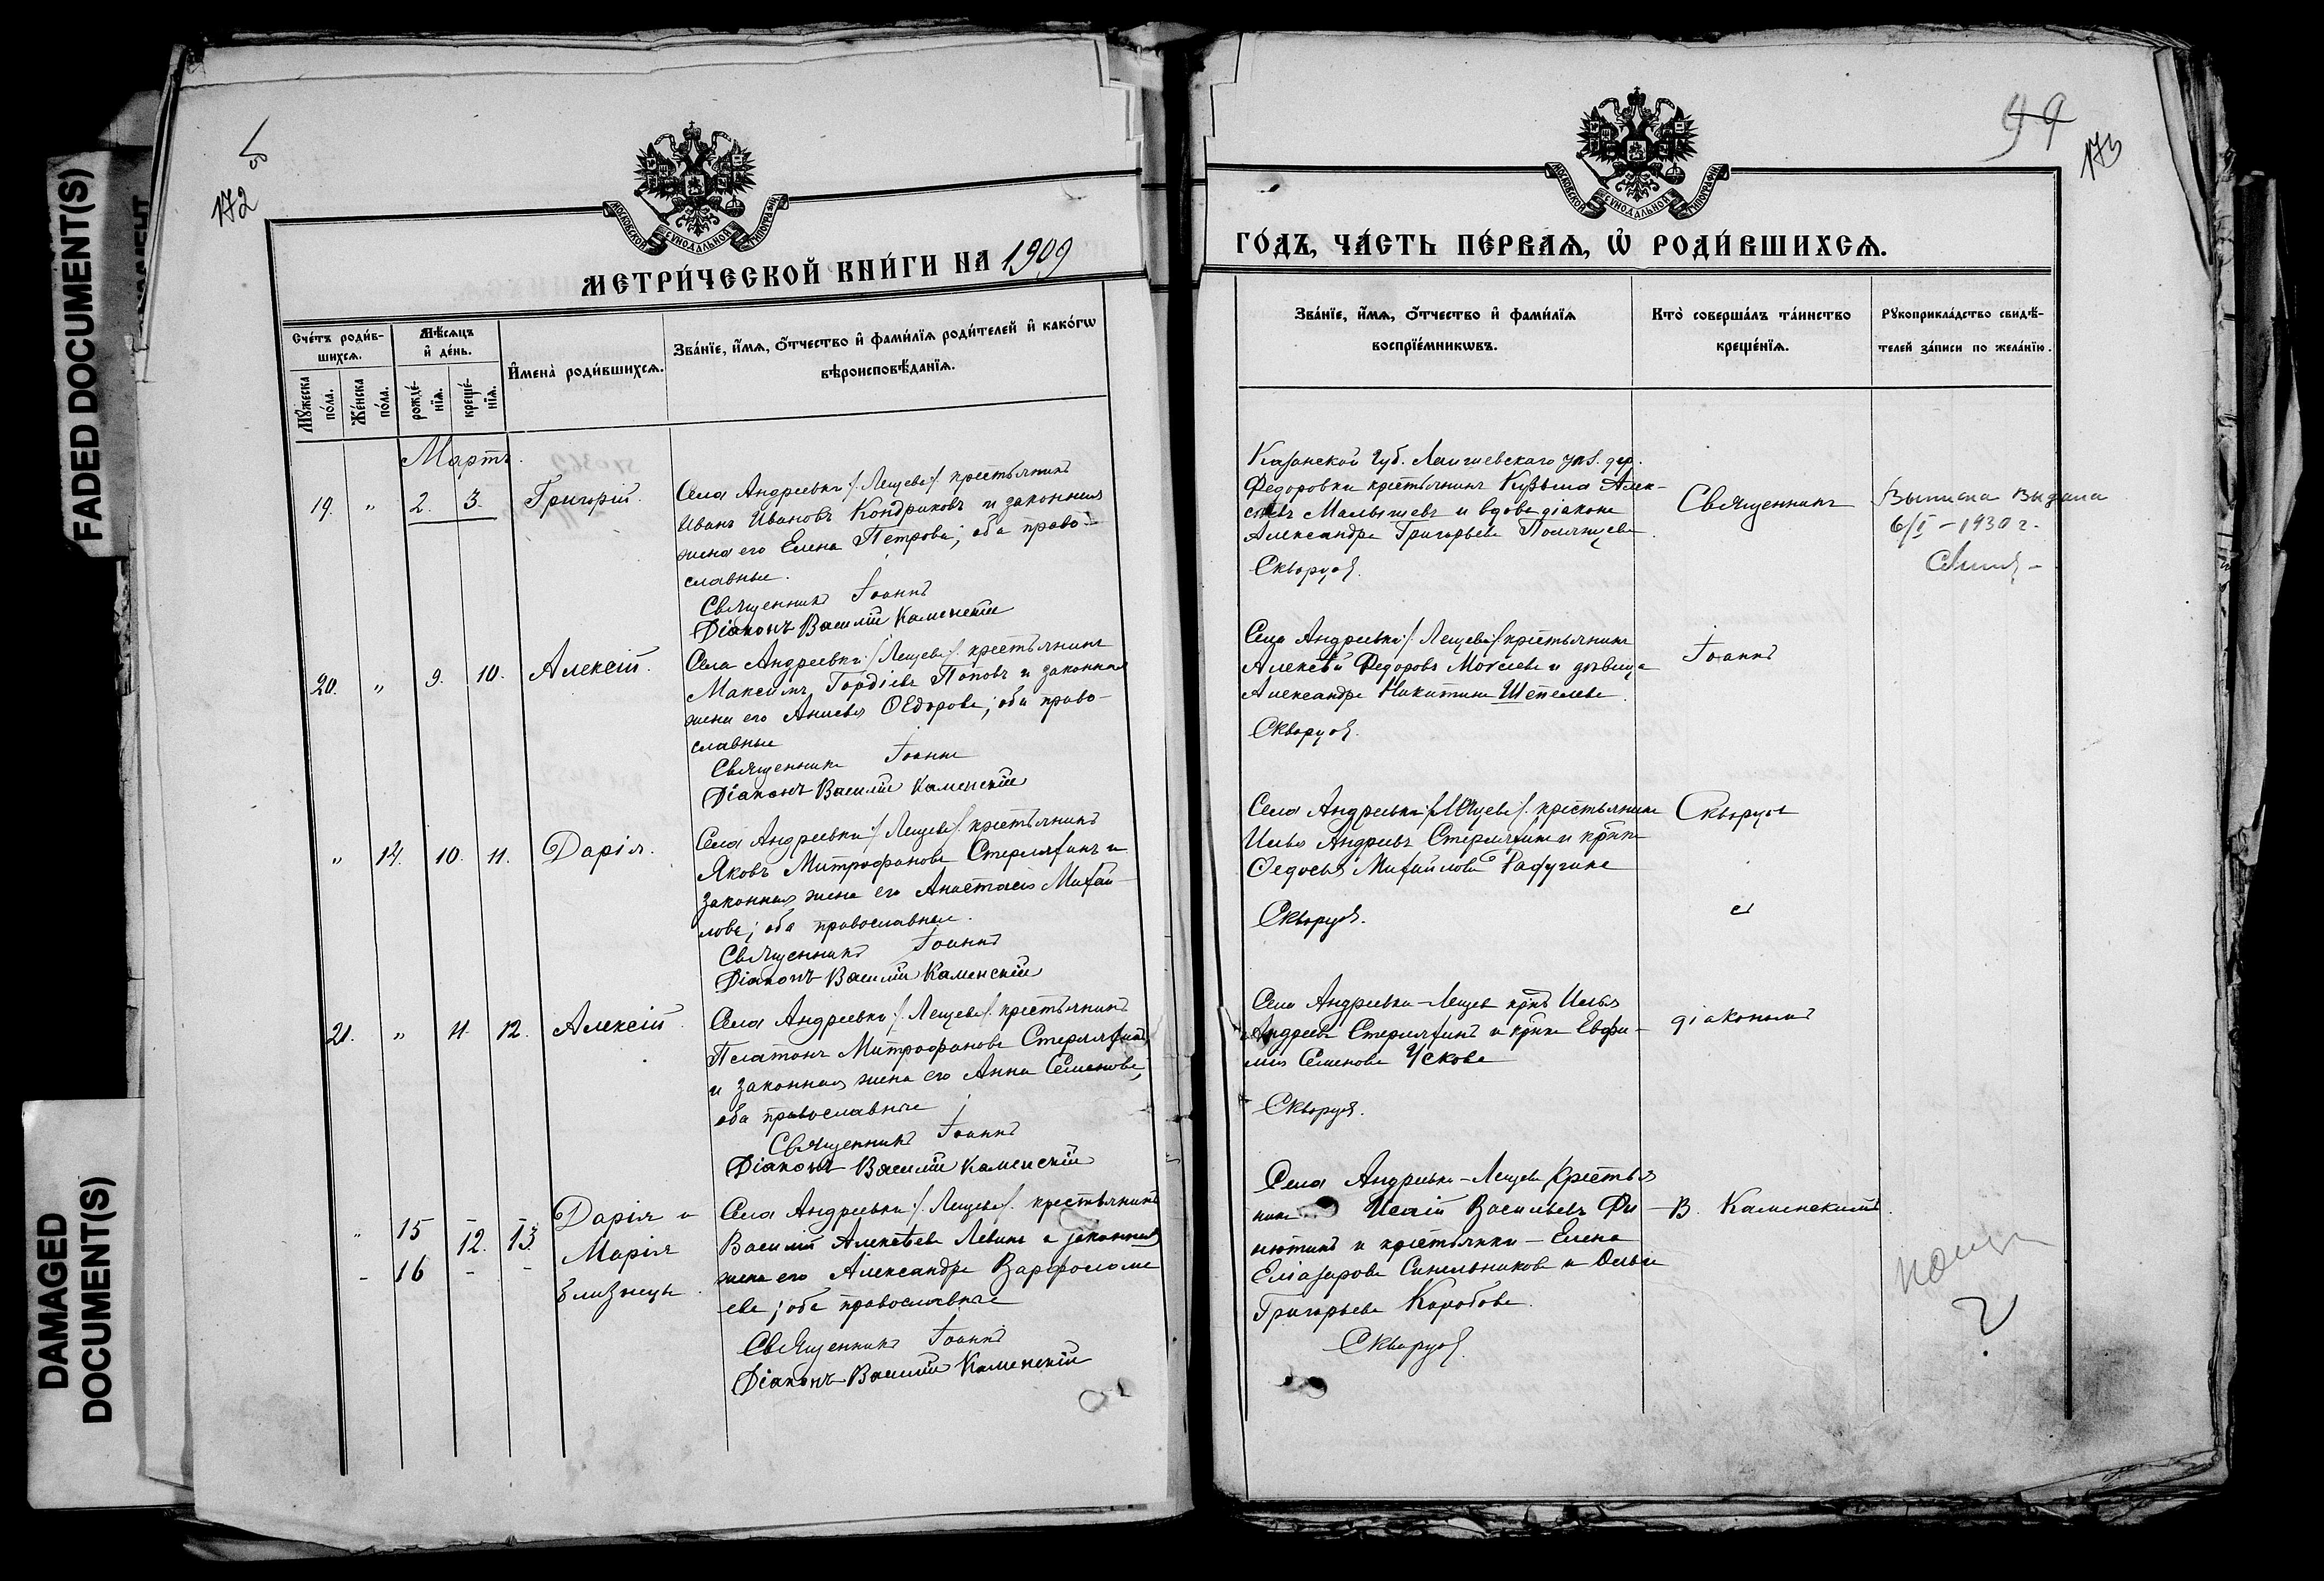 FADED DOCUMENT(S)
DAMAGED
DOCUMENT(S)
172
МОСКОВСКОЙ СѴНОДАЛЬНОЙ ТИПОГРАФІИ
МЕТРИ́ЧЕСКОЙ КНИ́ГИ НА 1909
Сче́тъ роди́в-
шихсѧ.
Мѣ́сѧцъ
и҆ де́нь.
И҆мена̀ роди́вшихсѧ.
Зва́нїе, и҆́мѧ, ѻ҆́тчество и҆ фами́лїѧ роди́телей и҆ како́гѡ
вѣроисповѣ́данїѧ.
Мꙋ́жеска
по́ла.
Же́нска
по́ла.
рожде́-
нїѧ.
креще́-
нїѧ.
Мартъ.
19. " 2. 3. Григорій.
Села Андреевки /Лещева/. крестьянинъ
Иванъ Ивановъ Кондриковъ и законная
жена его Елена Петрова; оба право-
славные.
Священникъ Іоаннъ
Діаконъ Василій Каменскій
20. " 9. 10. Алексій.
Села Андреевки /Лещева/. крестьянинъ
Максимъ Гордіевъ Поповъ и законная
жена его Анисья Ѳедорова; оба право-
славные
Священникъ Іоаннъ
Діаконъ Василій Каменскій
" 14. 10. 11. Дарія.
Села Андреевки /Лещева/. крестьянинъ
Яковъ Митрофановъ Стерляхинъ и
законная жена его Анастасія Михай-
лова; оба православные.
Священникъ Іоаннъ
Діаконъ Василій Каменскій
21. " 11. 12. Алексій.
Села Андреевки /Лещева/. крестьянинъ
Платонъ Митрофановъ Стерляхинъ
и законная жена его Анна Семенова;
оба православные
Священникъ Іоаннъ
Діаконъ Василій Каменскій
" 15 12. 13. Дарія и
- 16 - - Марія
близнецы.
Села Андреевки /Лещева/. крестьянинъ
Василій Алексѣевъ Левинъ и законная
жена его Александра Варфоломе
ева; оба православные
Священникъ Іоаннъ
Діаконъ Василій Каменскій
99
173
МОСКОВСКОЙ СѴНОДАЛЬНОЙ ТИПОГРАФІИ
ГО́ДЪ, ЧА́СТЬ ПЕ́РВАѦ, Ѡ҆ РОДИ́ВШИХСѦ.
Зва́нїе, и҆́мѧ, ѻ҆́тчество и҆ фами́лїѧ
воспрїе́мникѡвъ.
Кто̀ соверша́лъ та́инство
креще́нїѧ.
Рꙋкоприкла́дство свидѣ́-
телей за́писи по жела́нїю.
Казанской Губ. Лаишевскаго уѣз. дер.
Федоровки крестьянинъ Кузьма Алек-
сѣевъ Малышевъ и вдова діакона
Александра Григорьева
Скворцов.
Священникъ
Выписка выдана
6/I - 1930 г.
Села Андреевки /Лещева/. крестьянинъ
Алексѣй Федоровъ и дѣвица
Александра Никитина Шепелева.
Скворцов.
Іоаннъ
Села Андреевки /Лещева/. крестьянинъ
Илья Андреевъ Стерляхинъ и крнка
Ѳедосья Михайлова Радугина
Скворцов.
Скворцов
с
Села Андреевки-Лещева крнъ Илья
Андреевъ Стерляхинъ и крнка Евфи-
мія Семенова Ускова
Скворцов.
діакономъ
Села Андреевки-Лещева крестья
нинъ Исаій Васильевъ Фи-
нютинъ и крестьянки - Елена
Еліазарова Синельникова и Ольга
Григорьева Коробова.
Скворцов.
В. Каменскимъ.
?